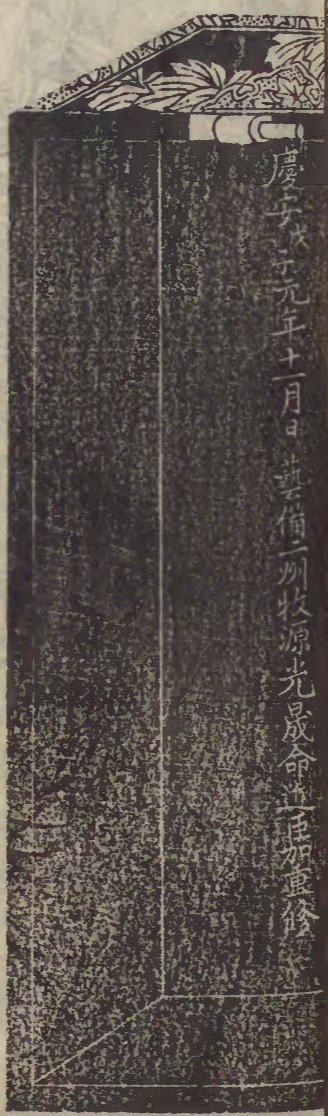 慶安戊子元年十一月日 藝備二州牧源光晟命近臣加重修